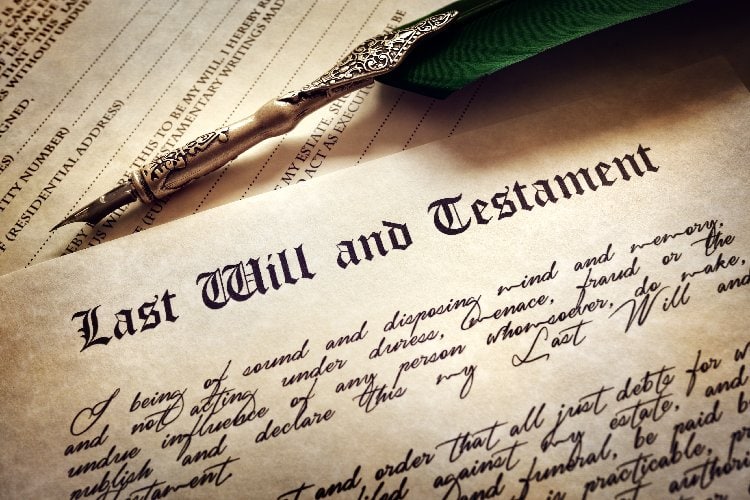 WITHOUT UNDU
GNED.
S)
TITY NUMBER)
F (RESIDENTIAL ADDRESS)
THIS TO BE MY WILL, I HEREBY RE
STAMENTARY WRITINGS MADE
MY ESTATE, SHO
BE
O ACT AS EXECU
Last Will and Testament
I being of sound and disposing mind and memory,
and not acting under duress, menace, fraud or the
undue influence of any person whomsoever, do make,
publish and declare this my Last Will and
stament
t and order that all just debts for w
iled against my estate, and
and funeral, be paid b
is practicable, pr